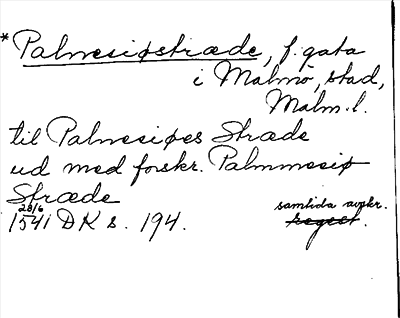 *Palmesiøstræde, f. gata
i Malmö, stad,
Malm. l.
til Palmesiøes Stræde
ud med forskr. Palmmesiø
Stræde
28/6
1541 DK s. 194.
samtida avskr.
regest.